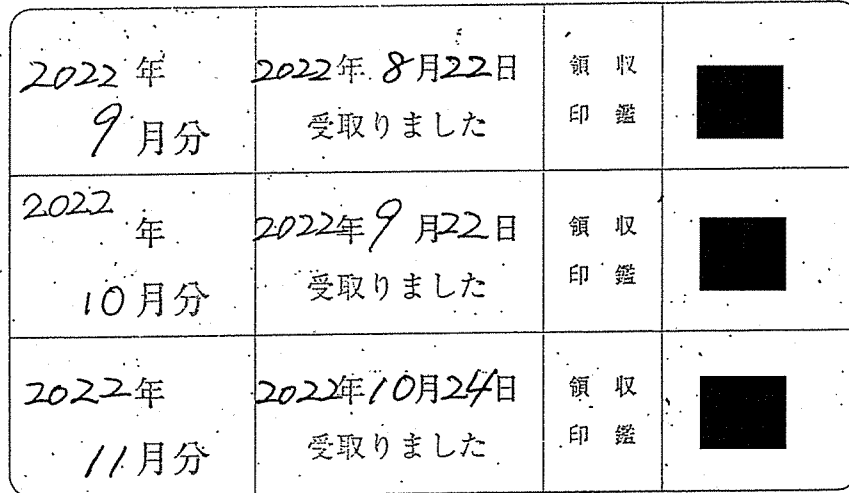 2022年
9月分
2022年8月22日
受取りました
領収
印鑑
2022年
10月分
2022年9月22日
受取りました
領収
印鑑
2022年
11月分
2022年10月24日
受取りました
領収
印鑑